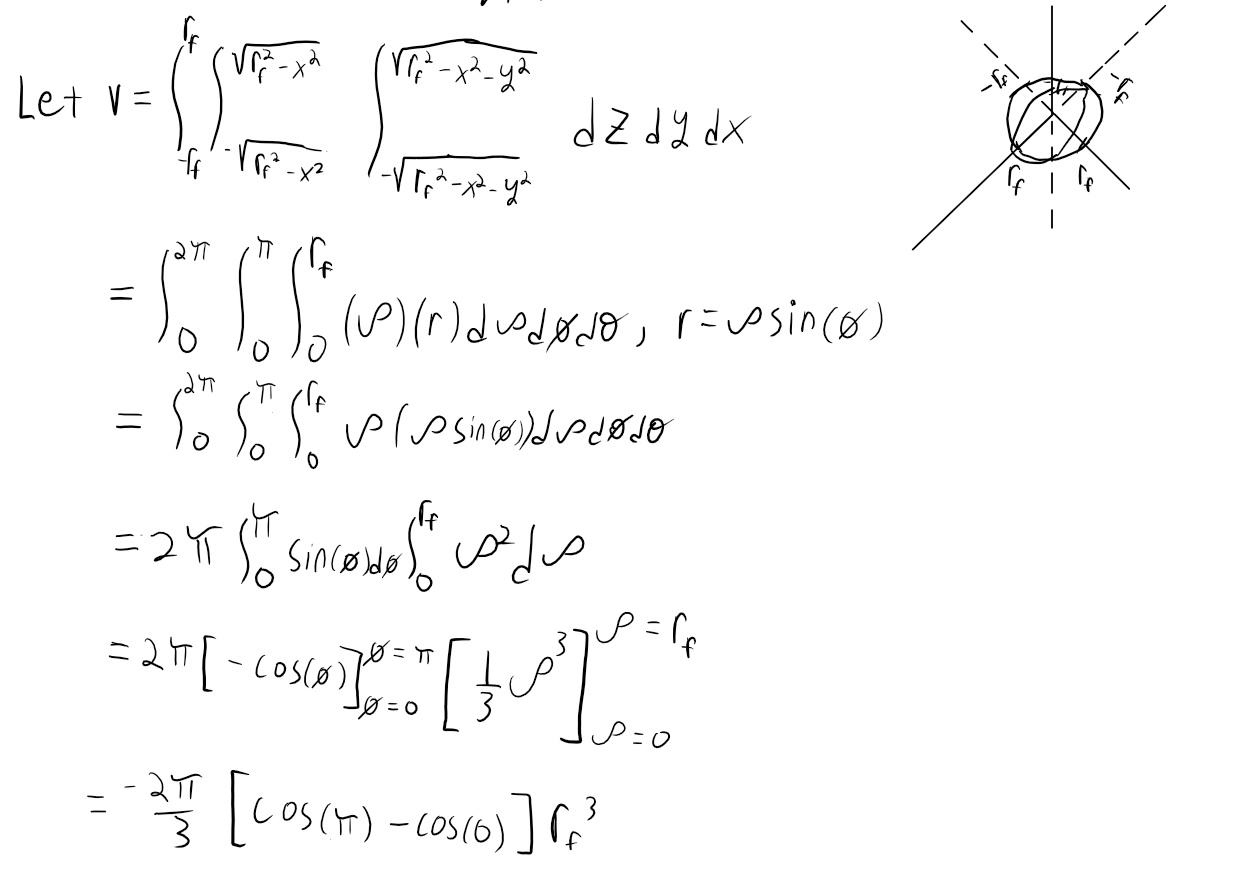 Let V = ∫_{-r_f}^{r_f} ∫_{-√(r_f²-x²)}^{√(r_f²-x²)} ∫_{-√(r_f²-x²-y²)}^{√(r_f²-x²-y²)} dz dy dx
-r_f -r_f
r_f r_f
= ∫_0^{2π} ∫_0^π ∫_0^{r_f} (ρ)(r) dρ dø dθ, r = ρ sin(ø)
= ∫_0^{2π} ∫_0^π ∫_0^{r_f} ρ(ρ sin(ø)) dρ dø dθ
= 2π ∫_0^π sin(ø) dø ∫_0^{r_f} ρ² dρ
= 2π [-cos(ø)]_{ø=0}^{ø=π} [1/3 ρ³]_{ρ=0}^{ρ=r_f}
= -2π/3 [cos(π) - cos(0)] r_f³